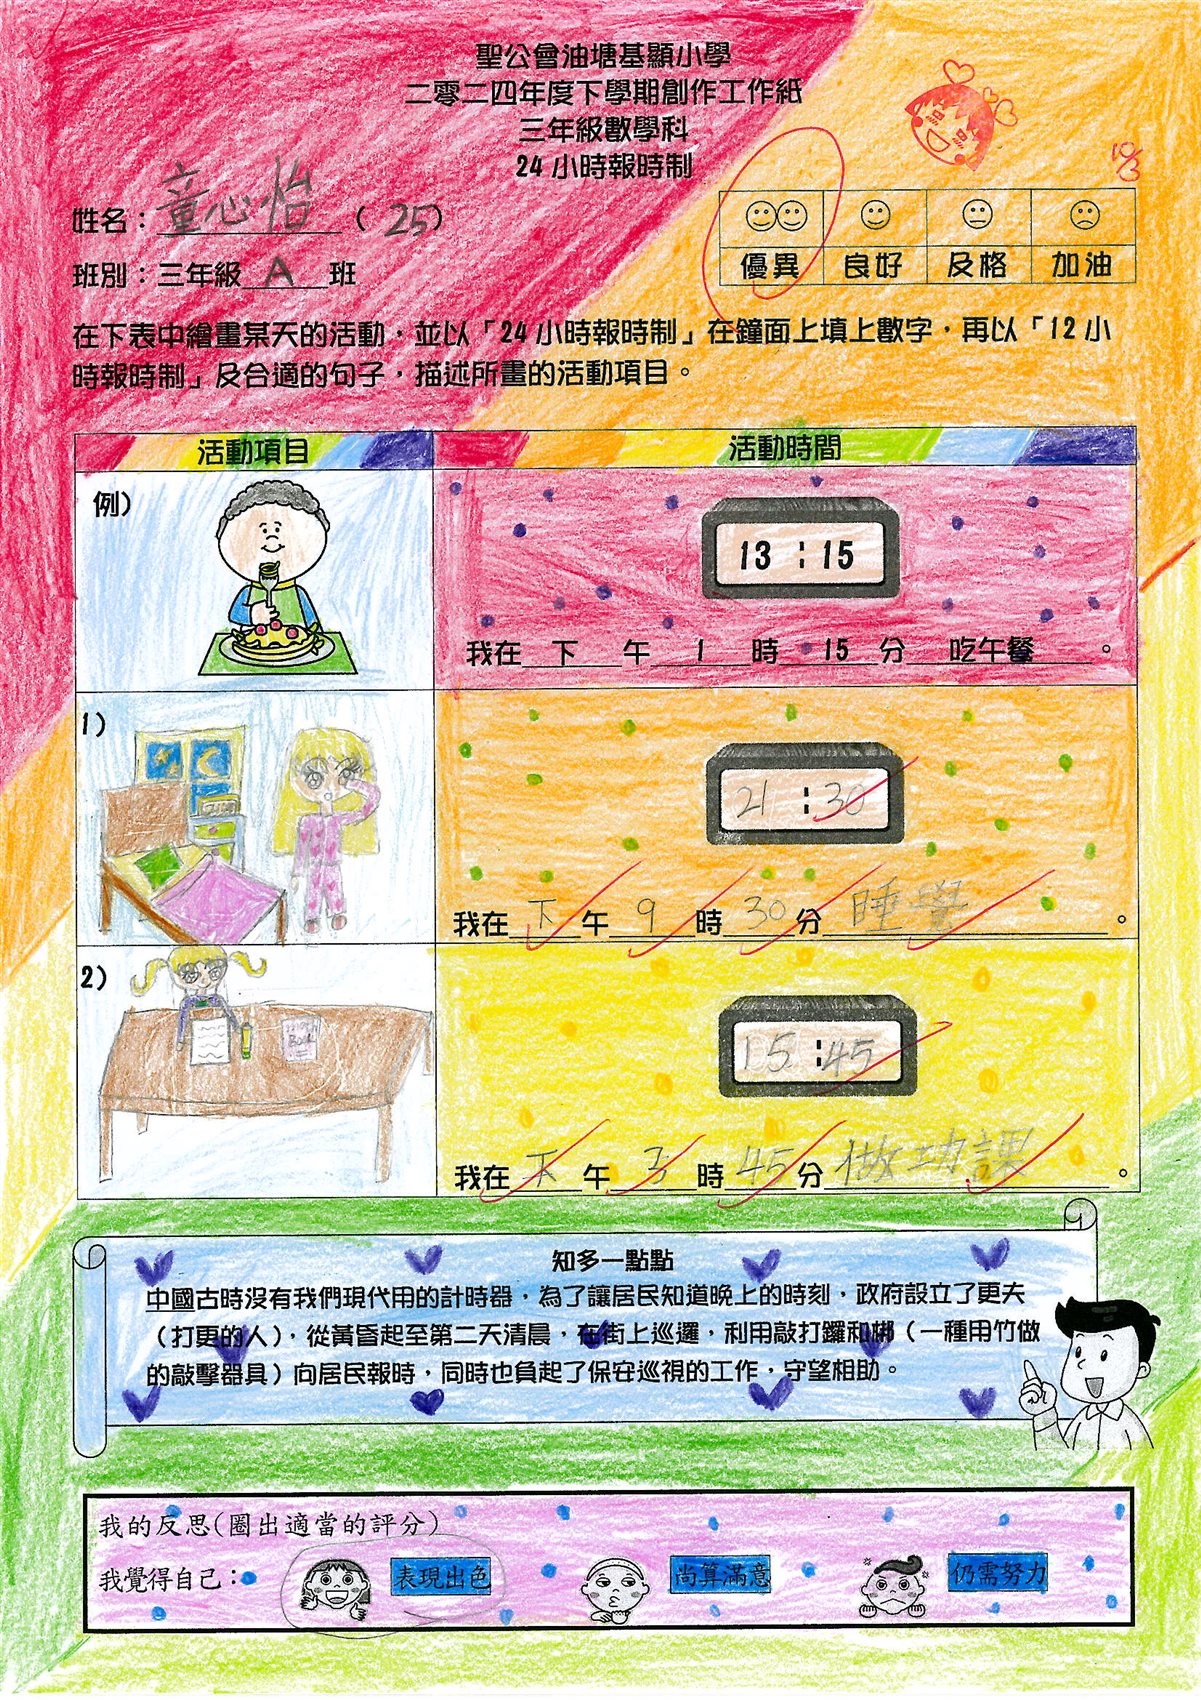 聖公會油塘基顯小學
二零二四年度下學期創作工作紙
三年級數學科
24 小時報時制
10/3
姓名：童心怡（ 25）
班別：三年級 A 班
優異 良好 及格 加油
在下表中繪畫某天的活動，並以「24 小時報時制」在鐘面上填上數字，再以「12 小
時報時制」及合適的句子，描述所畫的活動項目。
活動項目 活動時間
例)
13 : 15
我在 下 午 1 時 15 分 吃午餐 。
1)
21 : 30
我在 下 午 9 時 30 分 睡覺 。
2)
BOOK
15 : 45
我在 下 午 3 時 45 分 做功課 。
知多一點點
中國古時沒有我們現代用的計時器，為了讓居民知道晚上的時刻，政府設立了更夫
（打更的人），從黃昏起至第二天清晨，在街上巡邏，利用敲打鑼和梆（一種用竹做
的敲擊器具）向居民報時，同時也負起了保安巡視的工作，守望相助。
我的反思(圈出適當的評分)
我覺得自己： 表現出色 尚算滿意 仍需努力